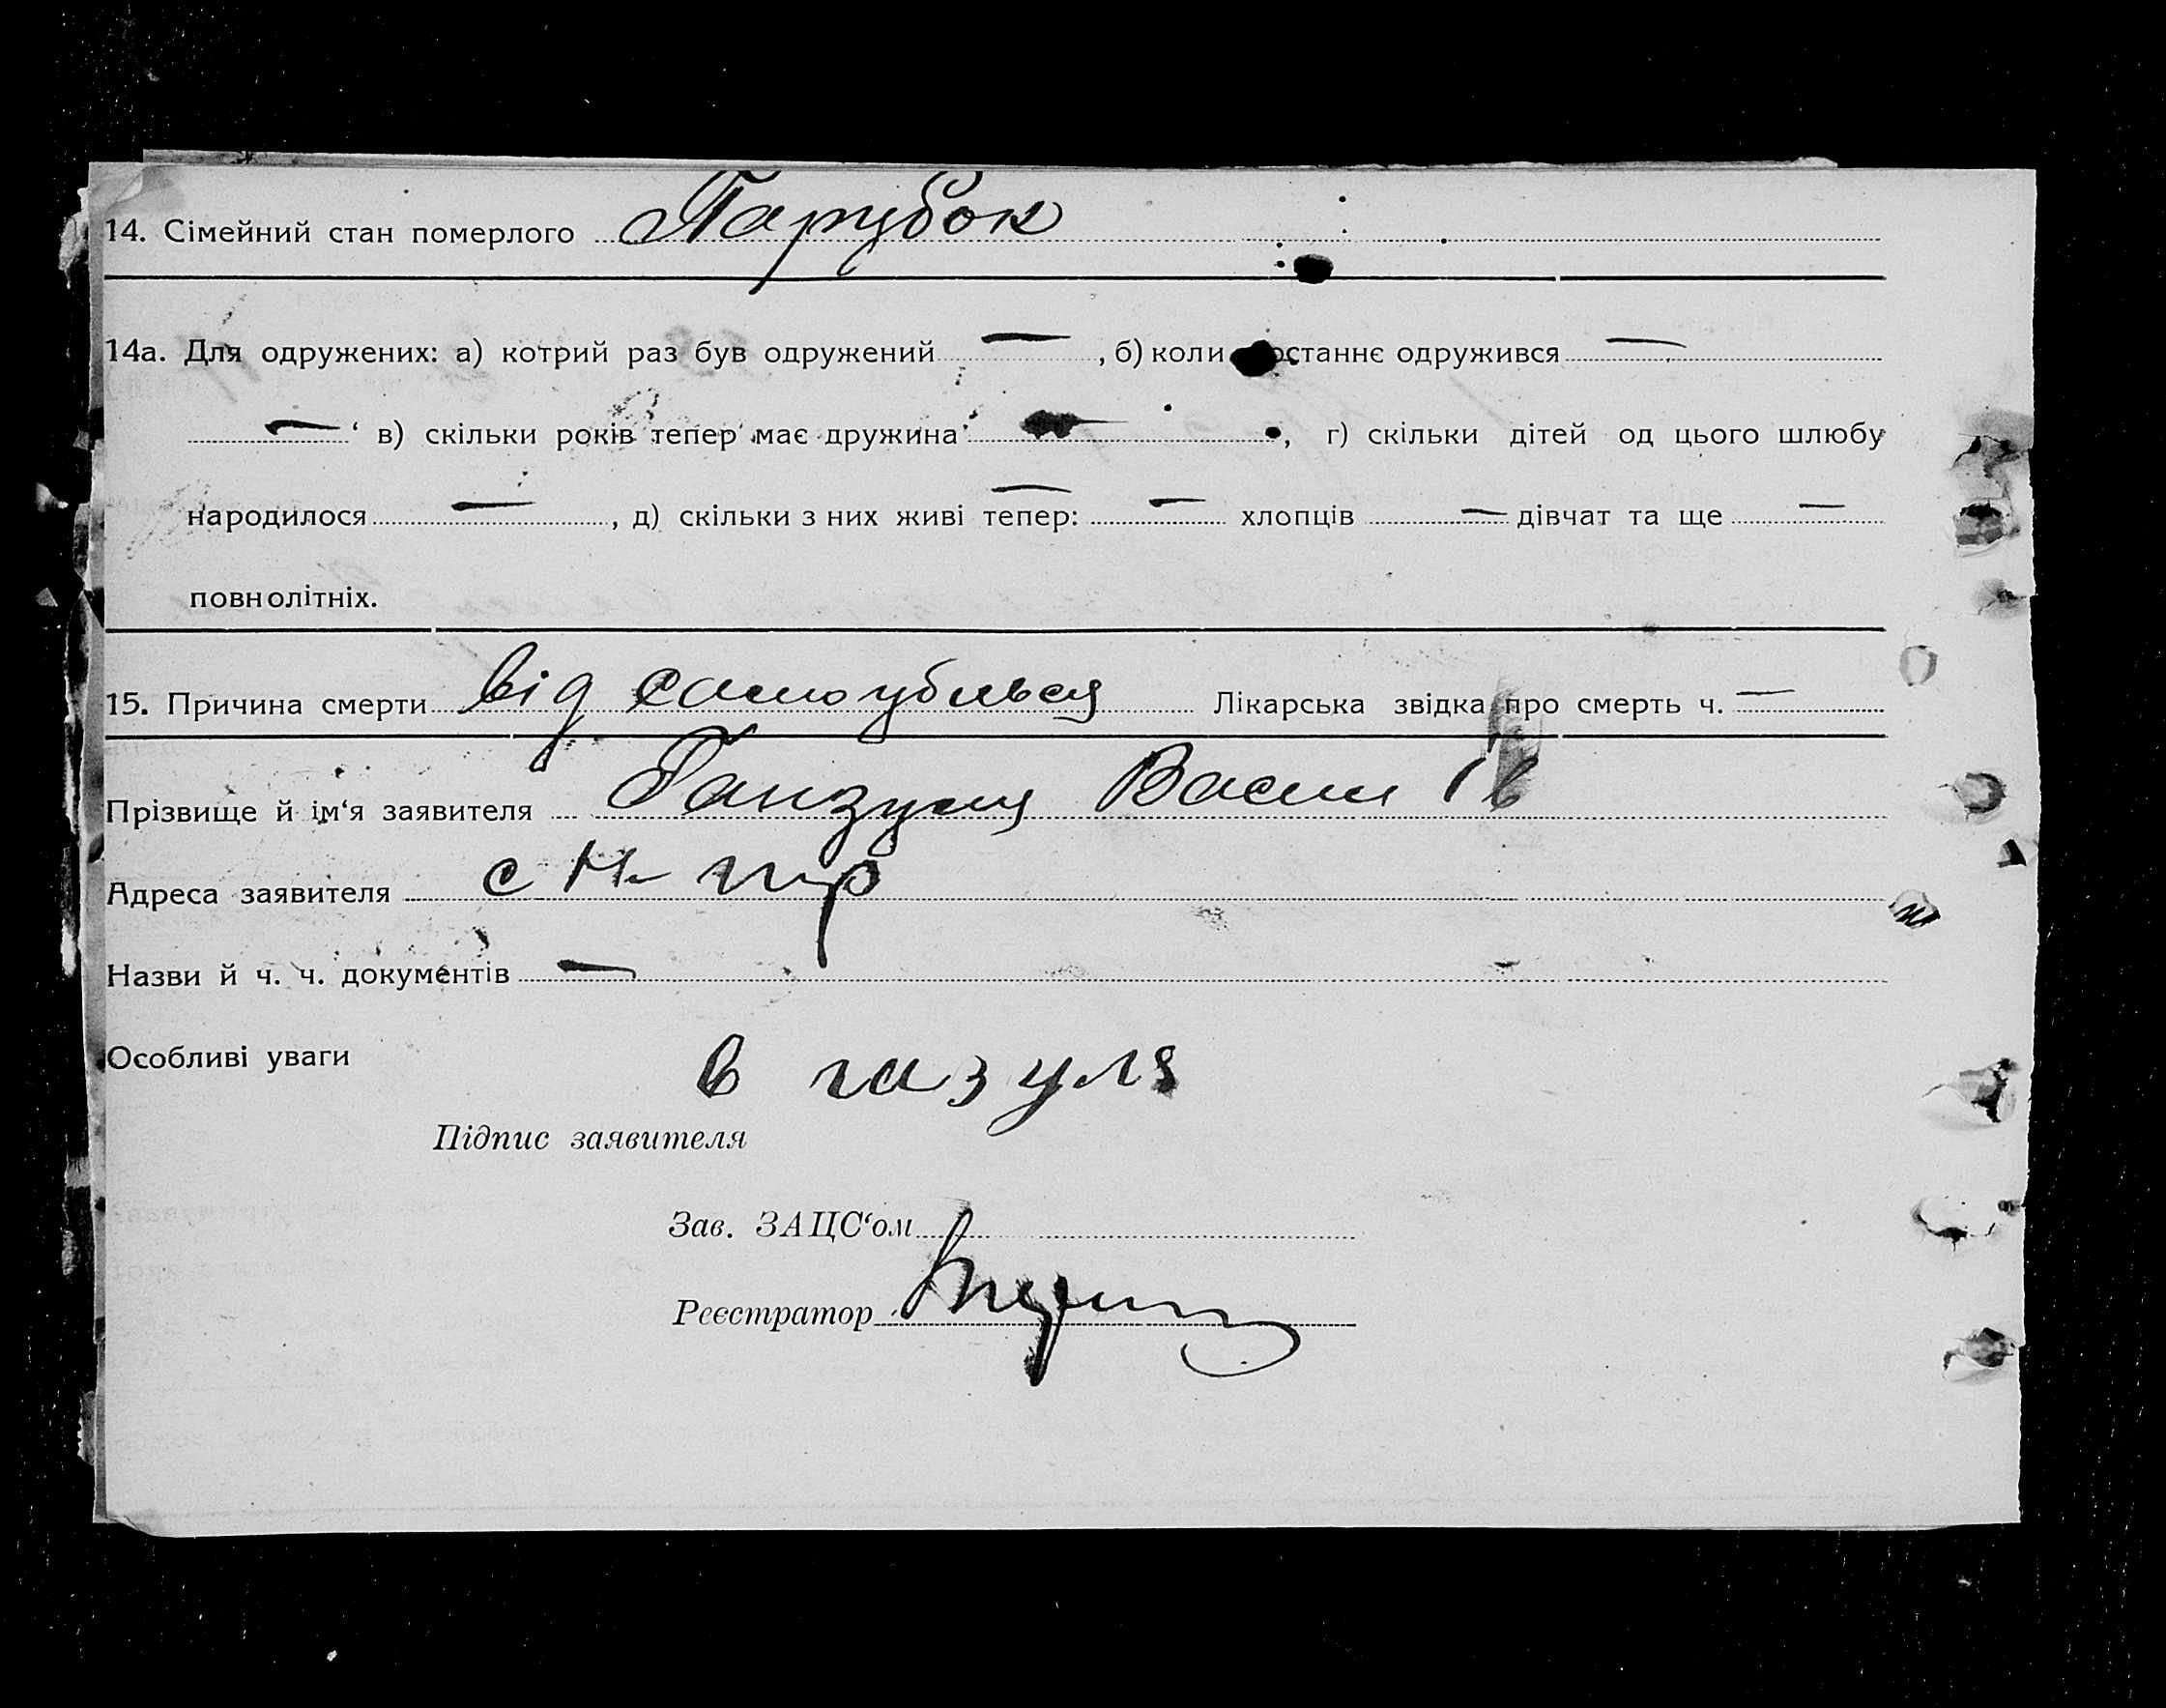 14. Сімейний стан померлого Парубок
14а. Для одружених: а) котрий раз був одружений — , б) коли останнє одружився —
— ‘ в) скільки років тепер має дружина — , г) скільки дітей од цього шлюбу
народилося — , д) скільки з них живі тепер: — хлопців — дівчат та ще —
повнолітніх.
15. Причина смерти від Лікарська звідка про смерть ч. —
Прізвище й ім‘я заявителя Васил Ів
Адреса заявителя с Н-
Назви й ч. ч. документів —
Особливі уваги
в газуля
Підпис заявителя
Зав. ЗАЦС‘ом
Реєстратор